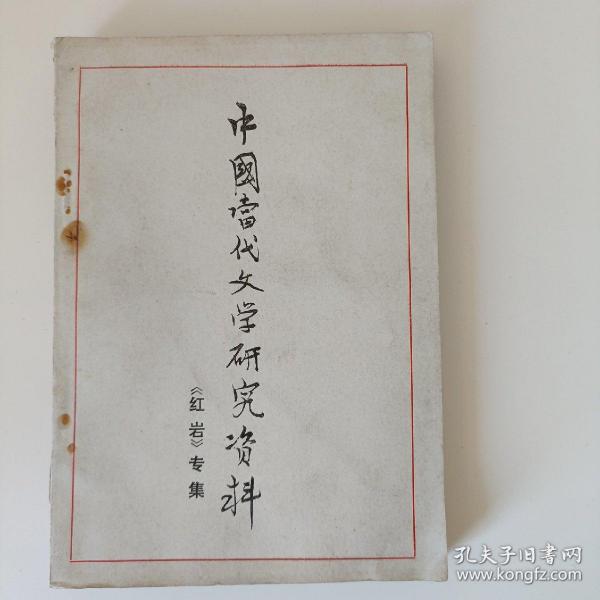 中國當代文学研究资料
《红岩》专集
孔夫子旧書网
www.kongfz.com